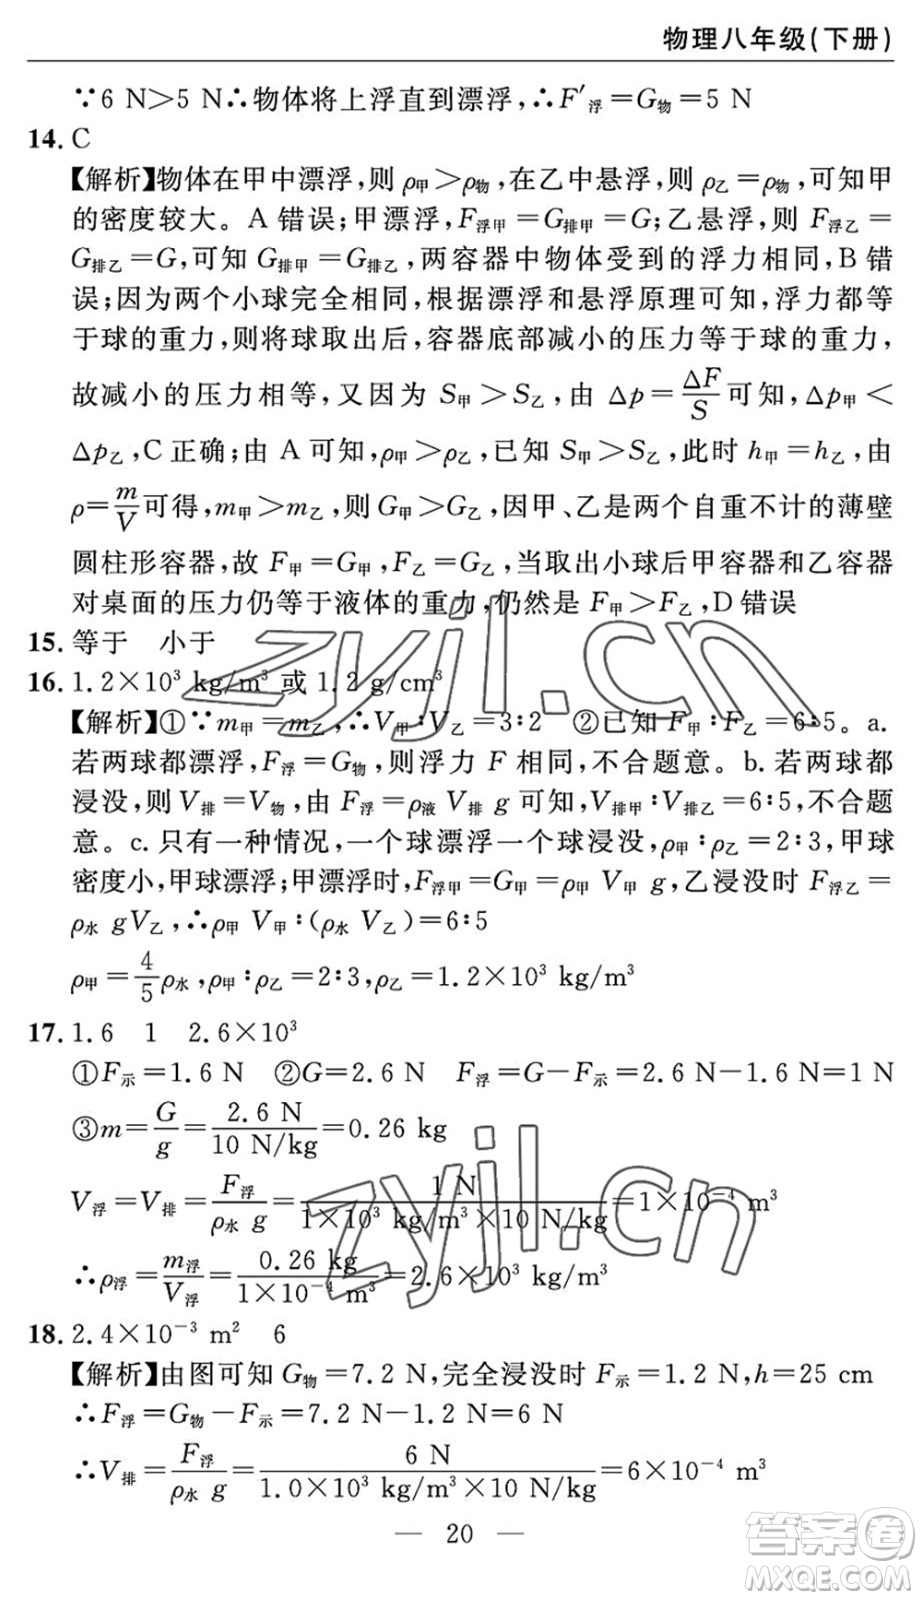 物理八年级(下册)
∵6 N＞5 N∴物体将上浮直到漂浮,∴F′浮＝G物＝5 N
14. C
【解析】物体在甲中漂浮,则 ρ甲＞ρ物,在乙中悬浮,则 ρ乙＝ρ物,可知甲
的密度较大。A 错误;甲漂浮,F浮甲＝G排甲＝G;乙悬浮,则 F浮乙＝
G排乙＝G,可知 G排甲＝G排乙,两容器中物体受到的浮力相同,B 错
误;因为两个小球完全相同,根据漂浮和悬浮原理可知,浮力都等
于球的重力,则将球取出后,容器底部减小的压力等于球的重力,
故减小的压力相等,又因为 S甲＞S乙,由 Δp＝ΔF/S 可知,Δp甲＜
Δp乙,C 正确;由 A 可知,ρ甲＞ρ乙,已知 S甲＞S乙,此时 h甲＝h乙,由
ρ＝m/V 可得,m甲＞m乙,则 G甲＞G乙,因甲、乙是两个自重不计的薄壁
圆柱形容器,故 F甲＝G甲,F乙＝G乙,当取出小球后甲容器和乙容器
对桌面的压力仍等于液体的重力,仍然是 F甲＞F乙,D 错误
15. 等于 小于
16. 1.2×10³ kg/m³ 或 1.2 g/cm³
【解析】①∵m甲＝m乙,∴V甲∶V乙＝3∶2 ②已知 F甲∶F乙＝6∶5。a.
若两球都漂浮,F浮＝G物,则浮力 F 相同,不合题意。b. 若两球都
浸没,则 V排＝V物,由 F浮＝ρ液 V排 g 可知,V排甲∶V排乙＝6∶5,不合题
意。c. 只有一种情况,一个球漂浮一个球浸没,ρ甲∶ρ乙＝2∶3,甲球
密度小,甲球漂浮;甲漂浮时,F浮甲＝G甲＝ρ甲 V甲 g,乙浸没时 F浮乙＝
ρ水 gV乙,∴ρ甲 V甲∶(ρ水 V乙)＝6∶5
ρ甲＝4/5ρ水,ρ甲∶ρ乙＝2∶3,ρ乙＝1.2×10³ kg/m³
17. 1.6 1 2.6×10³
①F示＝1.6 N ②G＝2.6 N F浮＝G－F示＝2.6 N－1.6 N＝1 N
③m＝G/g＝2.6 N/10 N/kg＝0.26 kg
V浮＝V排＝F浮/ρ水 g＝1 N/1×10³ kg/m³×10 N/kg＝1×10⁻⁴ m³
∴ρ浮＝m浮/V浮＝0.26 kg/1×10⁻⁴ m³＝2.6×10³ kg/m³
18. 2.4×10⁻³ m² 6
【解析】由图可知 G物＝7.2 N,完全浸没时 F示＝1.2 N,h＝25 cm
∴F浮＝G物－F示＝7.2 N－1.2 N＝6 N
∴V排＝F浮/ρ水 g＝6 N/1.0×10³ kg/m³×10 N/kg＝6×10⁻⁴ m³
— 20 —
zyjl.cn
zyjl.cn
答案圈
MXQE.COM